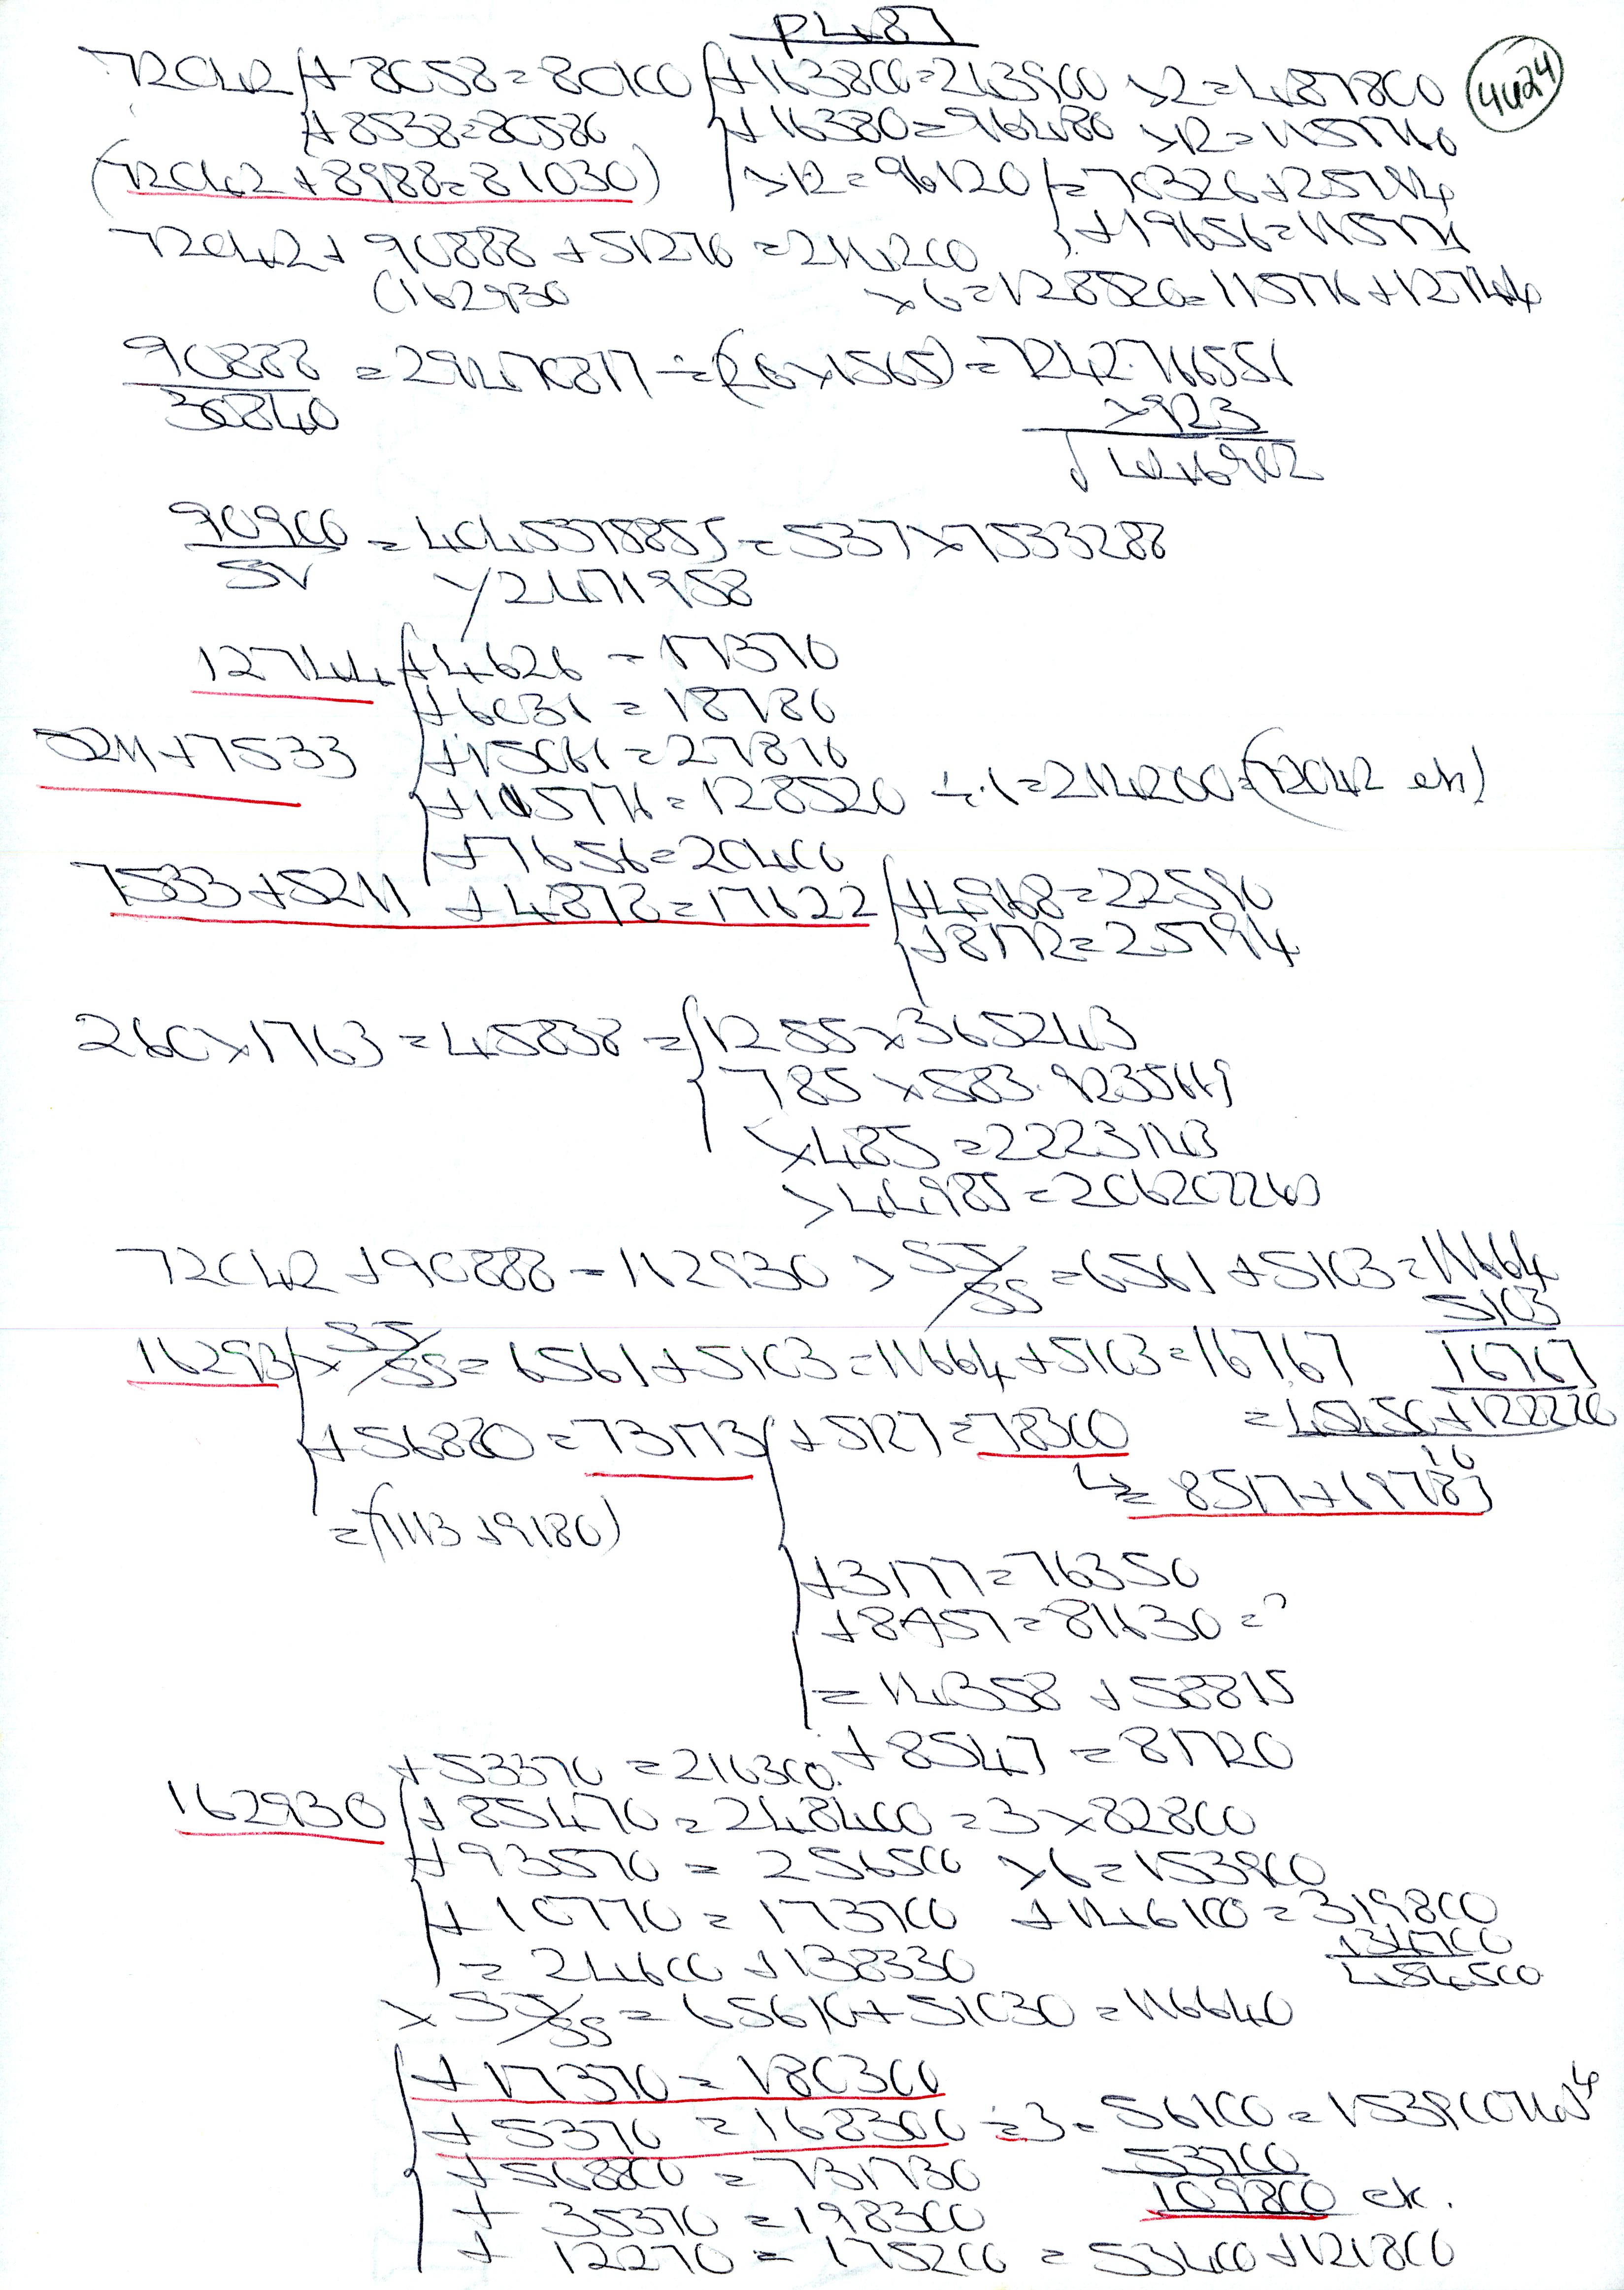 PL487
4424
72042 + 8058 = 80100 + 163800 = 243900 × 2 = 487800
+ 8538 = 80580 + 16380 = 96480 × 12 = 1157760
(72042 + 8988 = 81030) × 12 = 96120 = 70326 + 25794
+ 19656 = 115776
72042 + 90888 + 51270 = 214200
(162930 × 6 = 128520 = 115776 + 12744
90888 = 29470817 ÷ (26 × 1565) = 7242.766551
30840 × 923
90900 = 4045378855 = 537 × 7533288
SV 72471958
12744 + 4626 = 17370
+ 6036 = 18780
5211 + 7533 + 15066 = 27810
+ 115776 = 128520 ÷ .6 = 214200 = (72042 etc)
+ 7656 = 20400
7533 + 5211 + 4878 = 17622 + 4968 = 22590
+ 8172 = 25794
260 × 1763 = 45838 = 1255 × 365243
785 × 583.9235
× 485 = 2223143
× 44985 = 206202240
72042 + 90888 = 162930 × SJ/SS = 6561 + 5103 = 11664
5103
16293 × SJ/SS = 6561 + 5103 = 11664 + 5103 = 16767 16767
+ 56880 = 73173 + 5127 = 78300
= 8517 + 69783
= (7113 + 9180)
+ 3177 = 76350
+ 8457 = 81630 = ?
= 14358 + 58815
+ 8547 = 81720
+ 53370 = 216300
162930 + 85470 = 248400 = 3 × 82800
+ 93570 = 256500 × 6 = 153900
+ 10770 = 173700 + 146100 = 319800
134700
= 24600 + 138330 454500
× SJ/SS = 65610 + 51030 = 116640
+ 17370 = 180300
+ 5370 = 168300 ÷ 3 = 56100 = 153900
53700
+ 568800 = 731730
109800 etc.
+ 35370 = 198300
+ 12270 = 175200 = 53400 + 121800